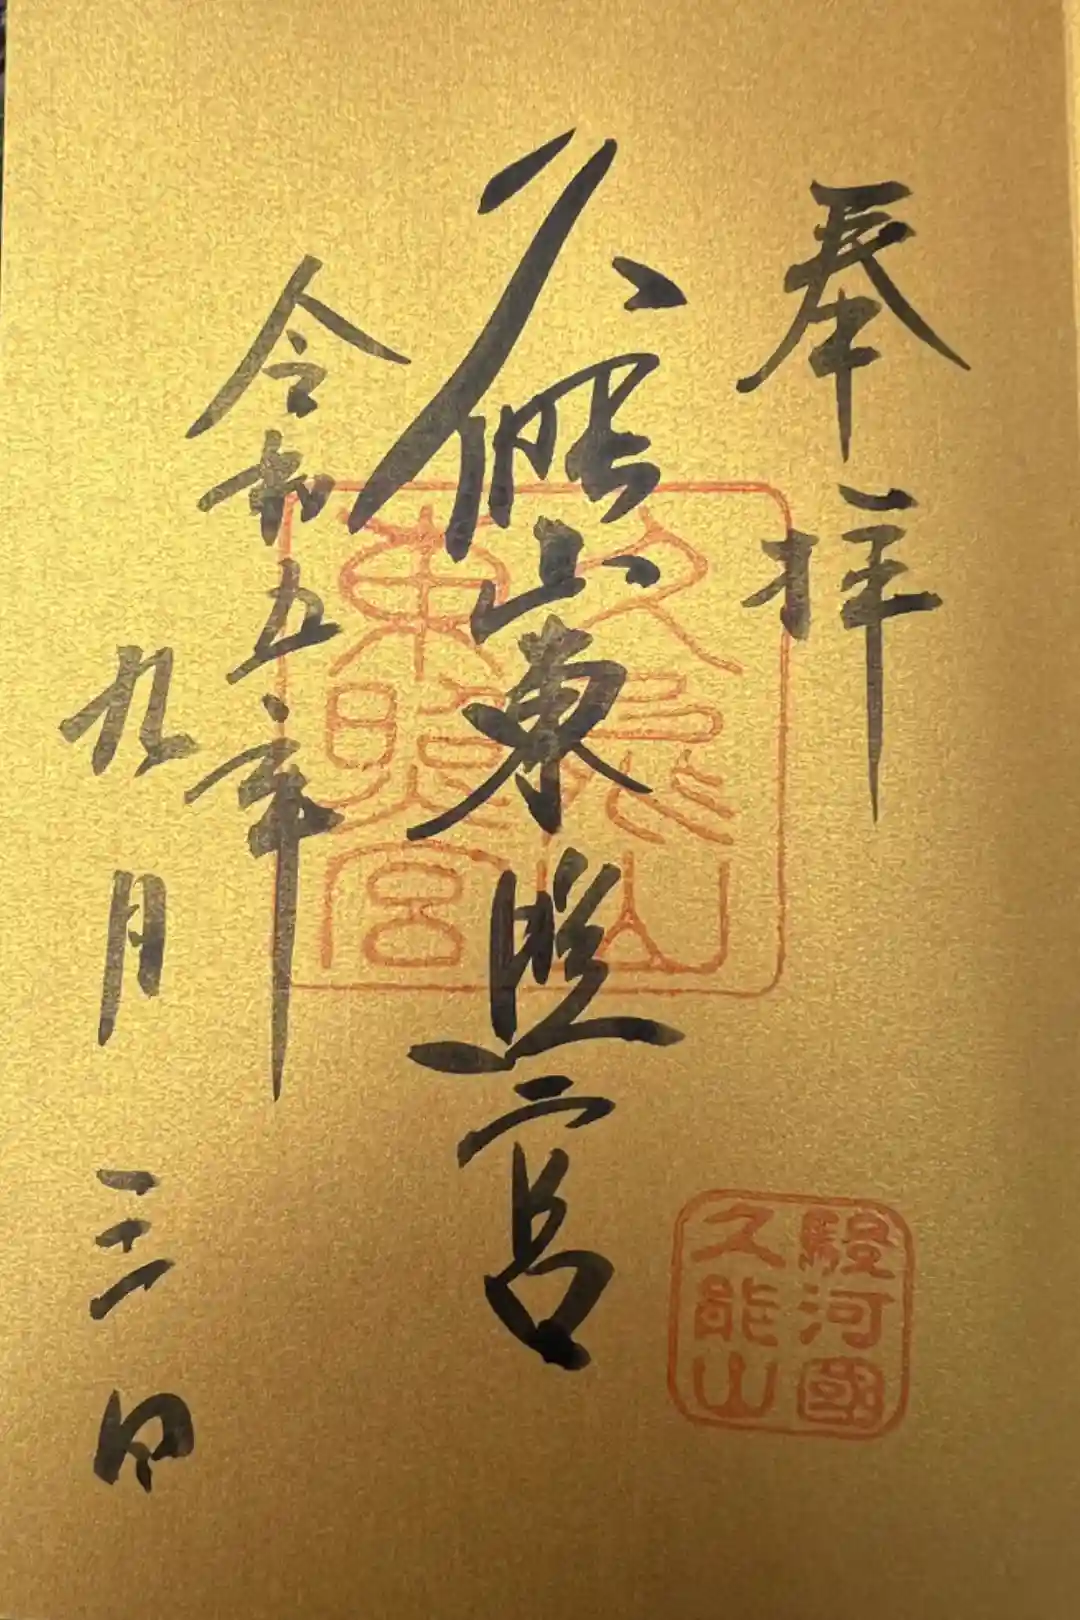 奉拝
久能山東照宮
令和五年
九月三日
久能山
東照宮
駿河國
久能山